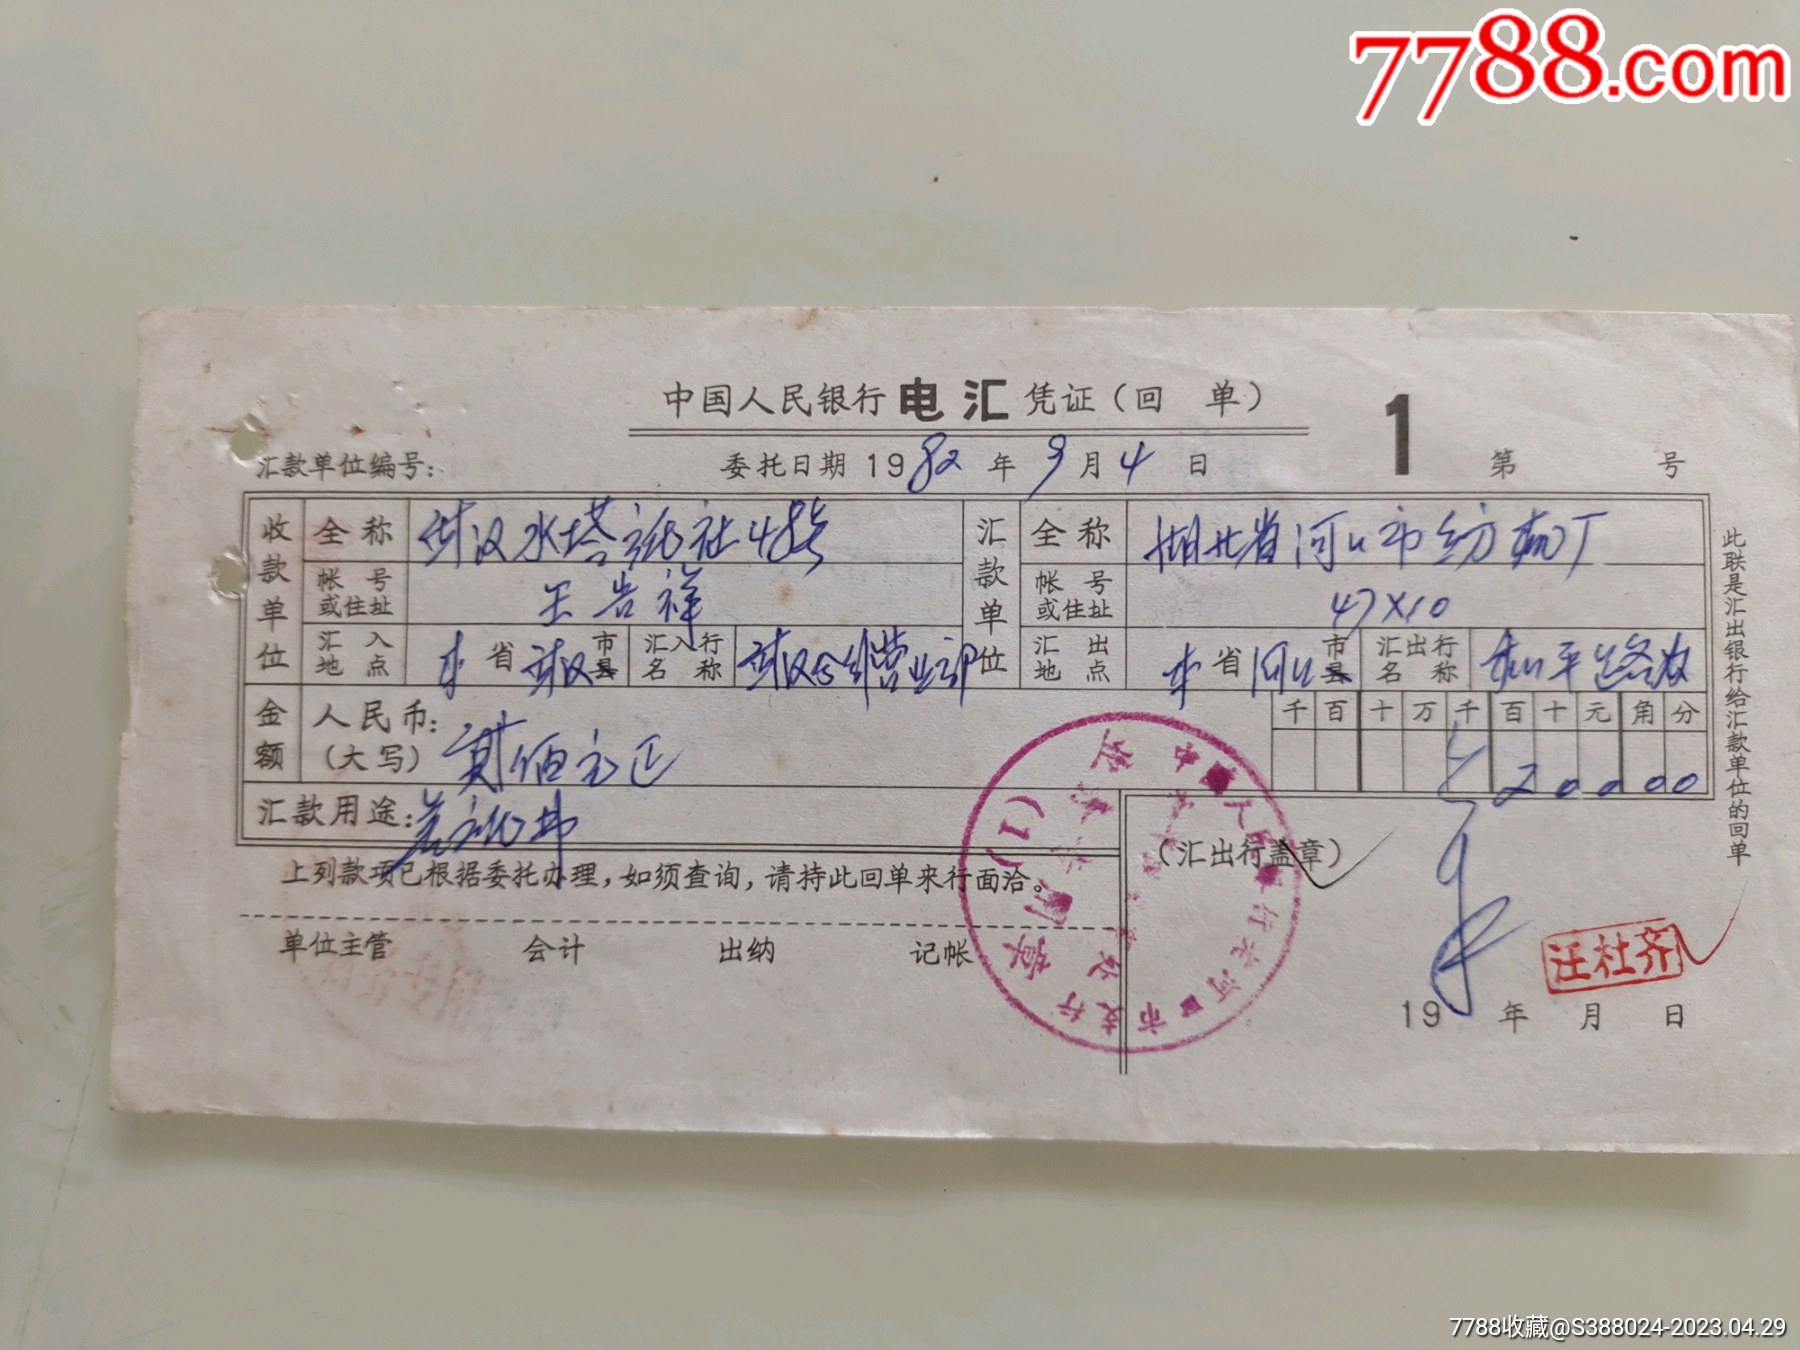 7788.com
中国人民银行 电汇 凭证（回 单）
1
汇款单位编号：
委托日期 1982 年 9 月 4 日
第 号
收款单位
全称
武汉水塔 社48号
汇款单位
全称
湖北省河口市纺 厂
帐号或住址
王告祥
帐号或住址
47×10
汇入地点
本 省 武汉 市县
汇入行名称
武汉 营业部
汇出地点
本 省 河口 市县
汇出行名称
平路
金额
人民币：
（大写）
贰佰元正
千百十万千百十元角分
20000
汇款用途：
上列款项已根据委托办理，如须查询，请持此回单来行面洽。
（汇出行盖章）
单位主管 会计 出纳 记帐
19 年 月 日
汪杜齐
中国人民银行老河口市支行
(1)
此联是汇出银行给汇款单位的回单
7788收藏@S388024-2023.04.29